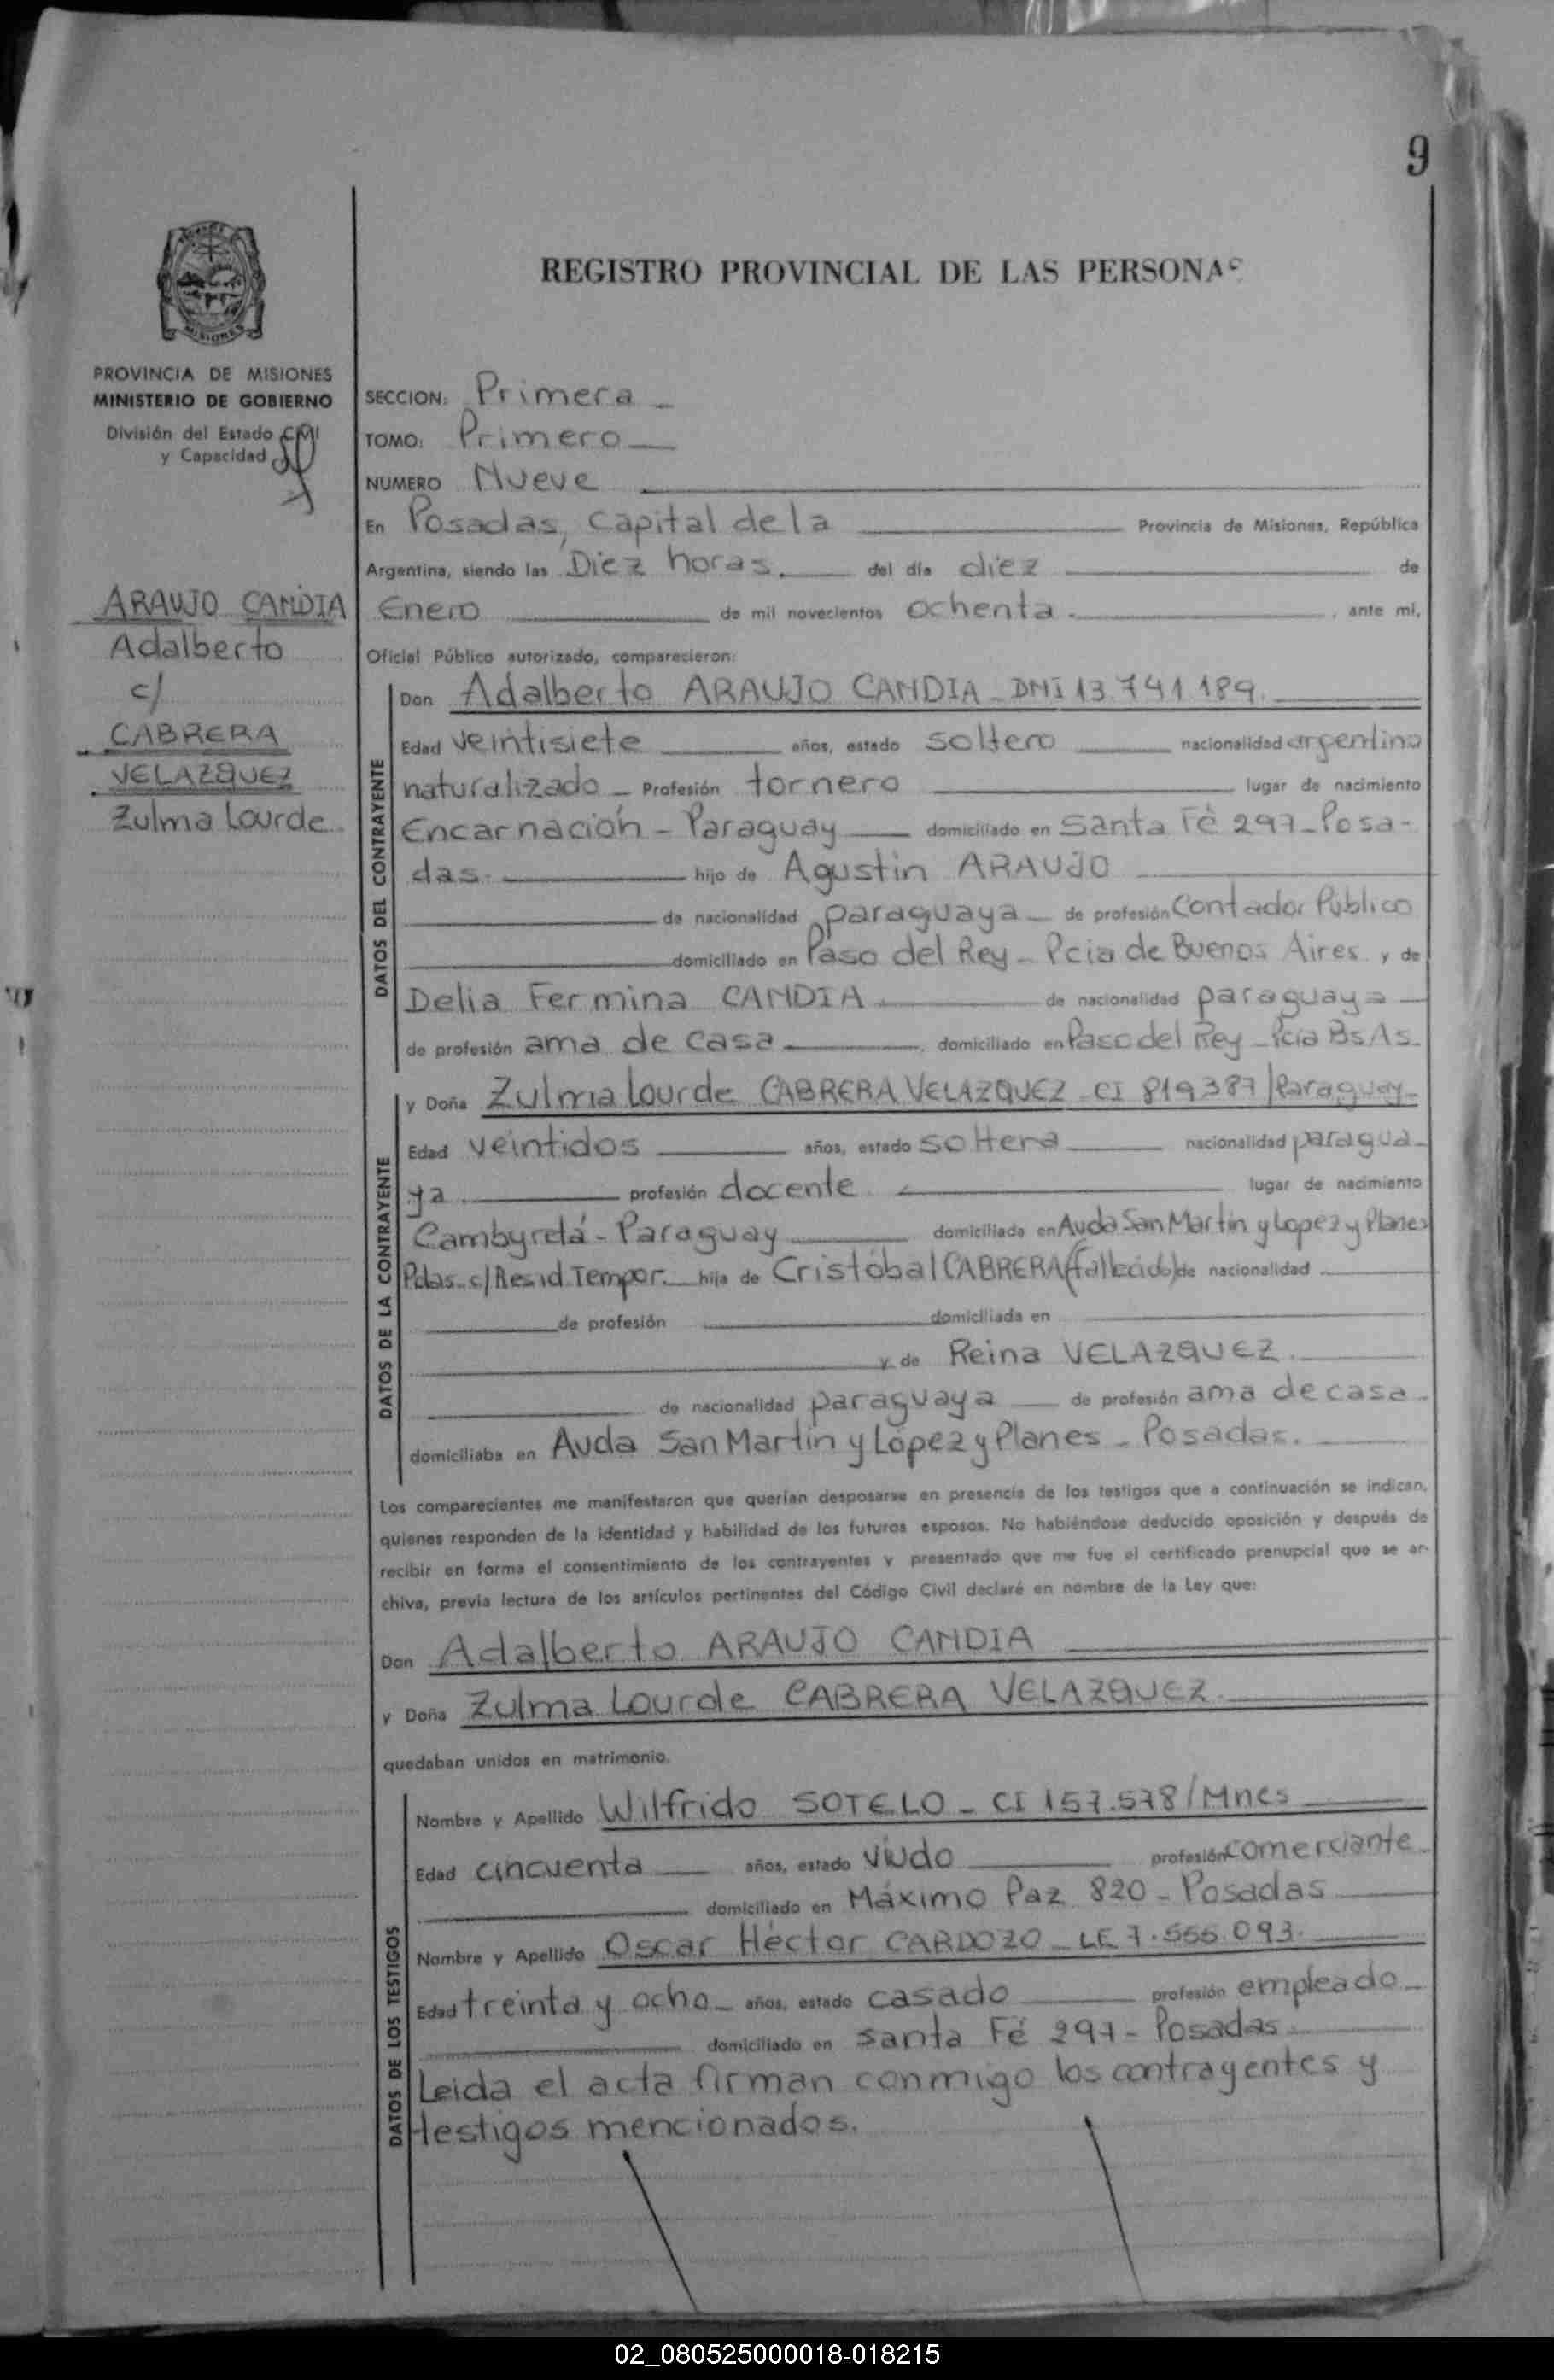 9
REGISTRO PROVINCIAL DE LAS PERSONAS
MISIONES
PROVINCIA DE MISIONES
MINISTERIO DE GOBIERNO
División del Estado Civil
y Capacidad
ARAUJO CANDIA
Adalberto
c/
CABRERA
VELAZQUEZ
Zulma Lourde
SECCION: Primera
TOMO: Primero
NUMERO Nueve
En Posadas, Capital de la Provincia de Misiones, República
Argentina, siendo las Diez horas. del día diez de
Enero de mil novecientos ochenta. , ante mi,
Oficial Público autorizado, comparecieron:
DATOS DEL CONTRAYENTE
Don Adalberto ARAUJO CANDIA - DNI 13.741.189.
Edad veintisiete años, estado soltero nacionalidad argentino
naturalizado - Profesión tornero lugar de nacimiento
Encarnación - Paraguay domiciliado en Santa Fé 297 - Posa-
das. hijo de Agustin ARAUJO
de nacionalidad paraguaya - de profesión Contador Publico
domiciliado en Paso del Rey - Pcia de Buenos Aires y de
Delia Fermina CANDIA de nacionalidad paraguaya
de profesión ama de casa , domiciliado en Paso del Rey - Pcia Bs As.
DATOS DE LA CONTRAYENTE
y Doña Zulma Lourde CABRERA VELAZQUEZ - CI 819387/Paraguay-
Edad veintidos años, estado soltera nacionalidad paragua-
ya profesión docente lugar de nacimiento
Cambyretá - Paraguay domiciliada en Avda San Martin y Lopez y Planes
Pdas. c/Resid Tempor. hija de Cristóbal CABRERA (fallecido) de nacionalidad
de profesión domiciliada en
y de Reina VELAZQUEZ.
de nacionalidad paraguaya de profesión ama de casa
domiciliaba en Avda San Martin y López y Planes - Posadas.
Los comparecientes me manifestaron que querían desposarse en presencia de los testigos que a continuación se indican,
quienes responden de la identidad y habilidad de los futuros esposos. No habiéndose deducido oposición y después de
recibir en forma el consentimiento de los contrayentes y presentado que me fue el certificado prenupcial que se ar-
chiva, previa lectura de los artículos pertinentes del Código Civil declaré en nombre de la Ley que:
Don Adalberto ARAUJO CANDIA
y Doña Zulma Lourde CABRERA VELAZQUEZ.
quedaban unidos en matrimonio.
DATOS DE LOS TESTIGOS
Nombre y Apellido Wilfrido SOTELO - CI 157.578/Mnes
Edad cincuenta años, estado viudo profesión comerciante
domiciliado en Máximo Paz 820 - Posadas
Nombre y Apellido Oscar Héctor CARDOZO - LE 7.555.093.
Edad treinta y ocho - años, estado casado profesión empleado
domiciliado en santa Fé 297 - Posadas
Leida el acta firman conmigo los contrayentes y
testigos mencionados.
02_080525000018-018215